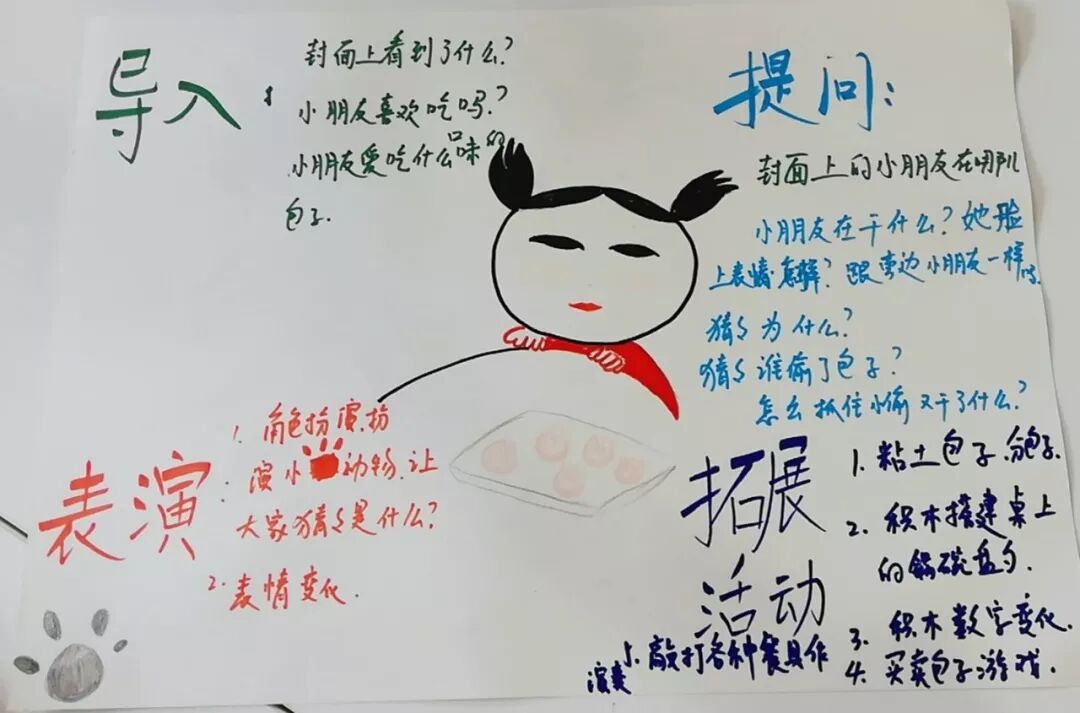 导入：
封面上看到了什么？
小朋友喜欢吃吗？
小朋友爱吃什么口味的
包子.
提问：
封面上的小朋友在哪儿
小朋友在干什么？她脸
上表情怎样？跟旁边小朋友一样吗.
猜猜为什么？
猜猜谁偷了包子？
怎么抓住小偷又干了什么？
表演：
1. 角色扮演.扮
演小动物.让
大家猜猜是什么？
2. 表情变化.
拓展
活动
1. 粘土包子.分包子.
2. 积木搭建桌上
的锅碗盘勺.
3. 积木数字变化.
4. 买卖包子游戏.
5. 敲打各种餐具作
演奏